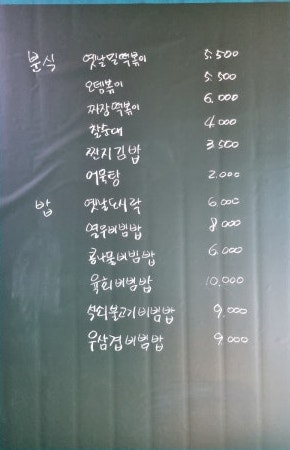 분식 옛날밀떡볶이 5.500
오뎅볶이 5.500
짜장떡볶이 6.000
찰순대 4.000
짠지김밥 3.500
어묵탕 2.000
밥 옛날도시락 6.000
열무비빔밥 8.000
콩나물비빔밥 6.000
육회비빔밥 10,000
석쇠불고기비빔밥 9,000
우삼겹비빔밥 9.000